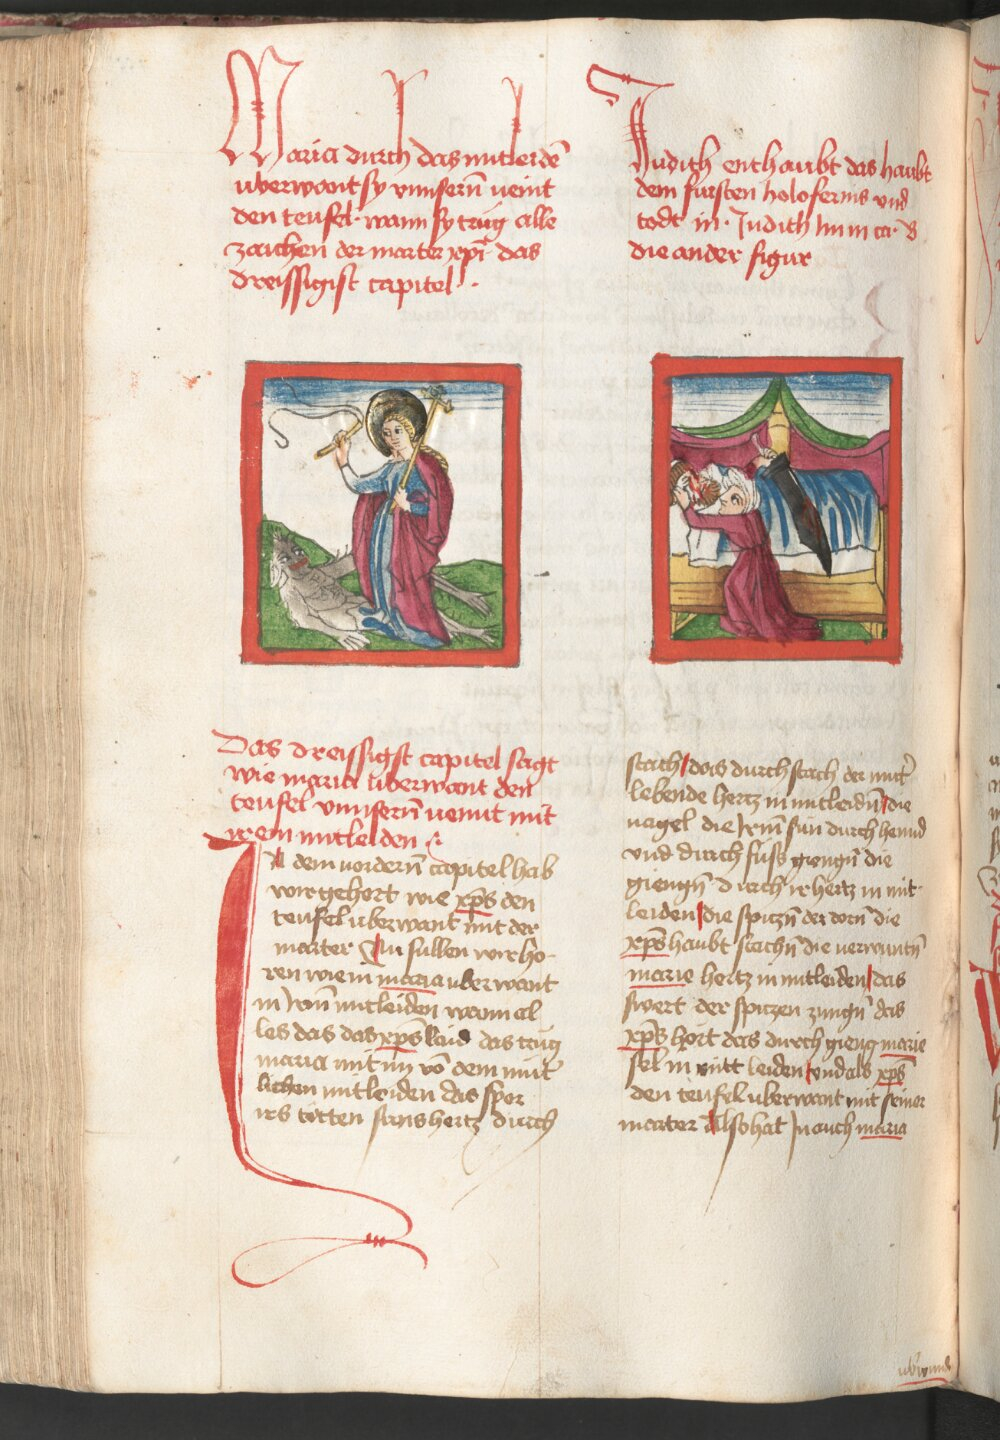 Maria durch das mitleidē
uberwont sy vnnsern̄ veint
den teufel · wann sy trug alle
zaichen der marter xp̄i das
dreissigist capitel ·
Judith enthaubt das haubt
dem fursten holofernis vnd
todt in · Judith
die ander figur
Das dreissigst capitel sagt
wie maria uberwant den
teufel vnnsern̄ veint mit
irem mitleiden
In dem vordern̄ capitel hab
wir gehort wie xp̄s den
teufel uberwant mit der
marter Nu sullen wir ho-
ren wie in maria uberwant
in irem mitleiden wann al
les das das xp̄s laid das trug
maria mit im vō dem mut̄
lichen mitleiden das sper
irs totten suns hertz durch
stach das durchstach der mut̄
lebende hertz in mitleidn̄ die
nagel die irm sun durch hennd
vnd durch fuss giengn̄ die
giengn̄ durch ir hertz in mit-
leiden die spitzn̄ der dorn̄ die
xp̄s haubt stachn̄ die verwuntn̄
marie hertz in mitleiden das
swert der spitzen zungn̄ das
xp̄s hort das durch gieng marie
sel in mitt leiden vnd als xp̄s
den teufel uberwant mit seiner
marter Also hat in auch maria